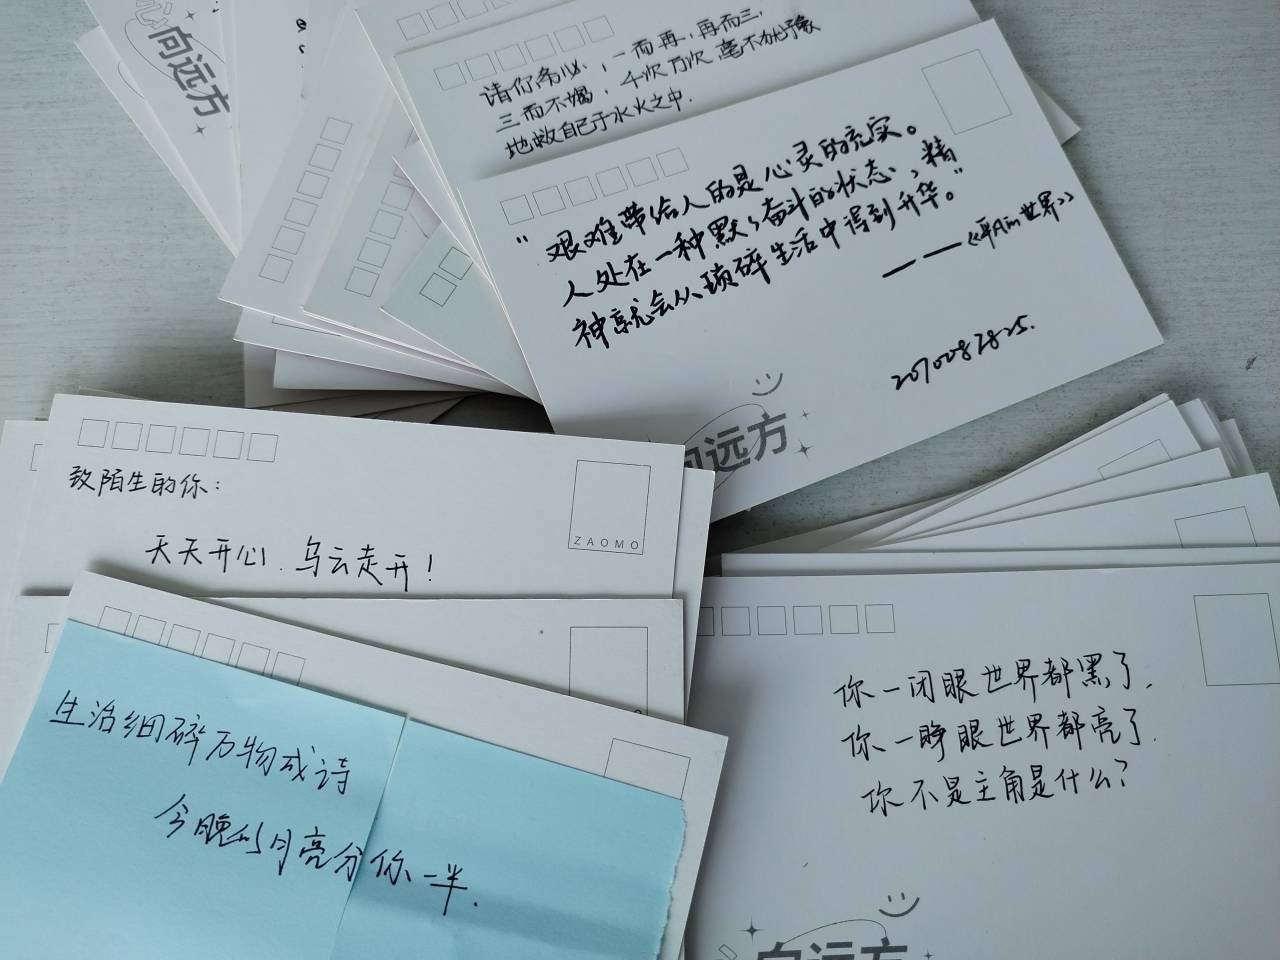 向远方
请你务必，一而再，再而三，
三而不竭，千次万次毫不犹豫
地救自己于水火之中.
"艰难带给人的是心灵的充实。
人处在一种默默奋斗的状态，精
神就会从琐碎生活中得到升华。"
——《平凡的世界》
向远方
致陌生的你：
天天开心.乌云走开！
ZAOMO
生活细碎万物成诗
今晚的月亮分你一半.
你一闭眼世界都黑了.
你一睁眼世界都亮了.
你不是主角是什么？
向远方